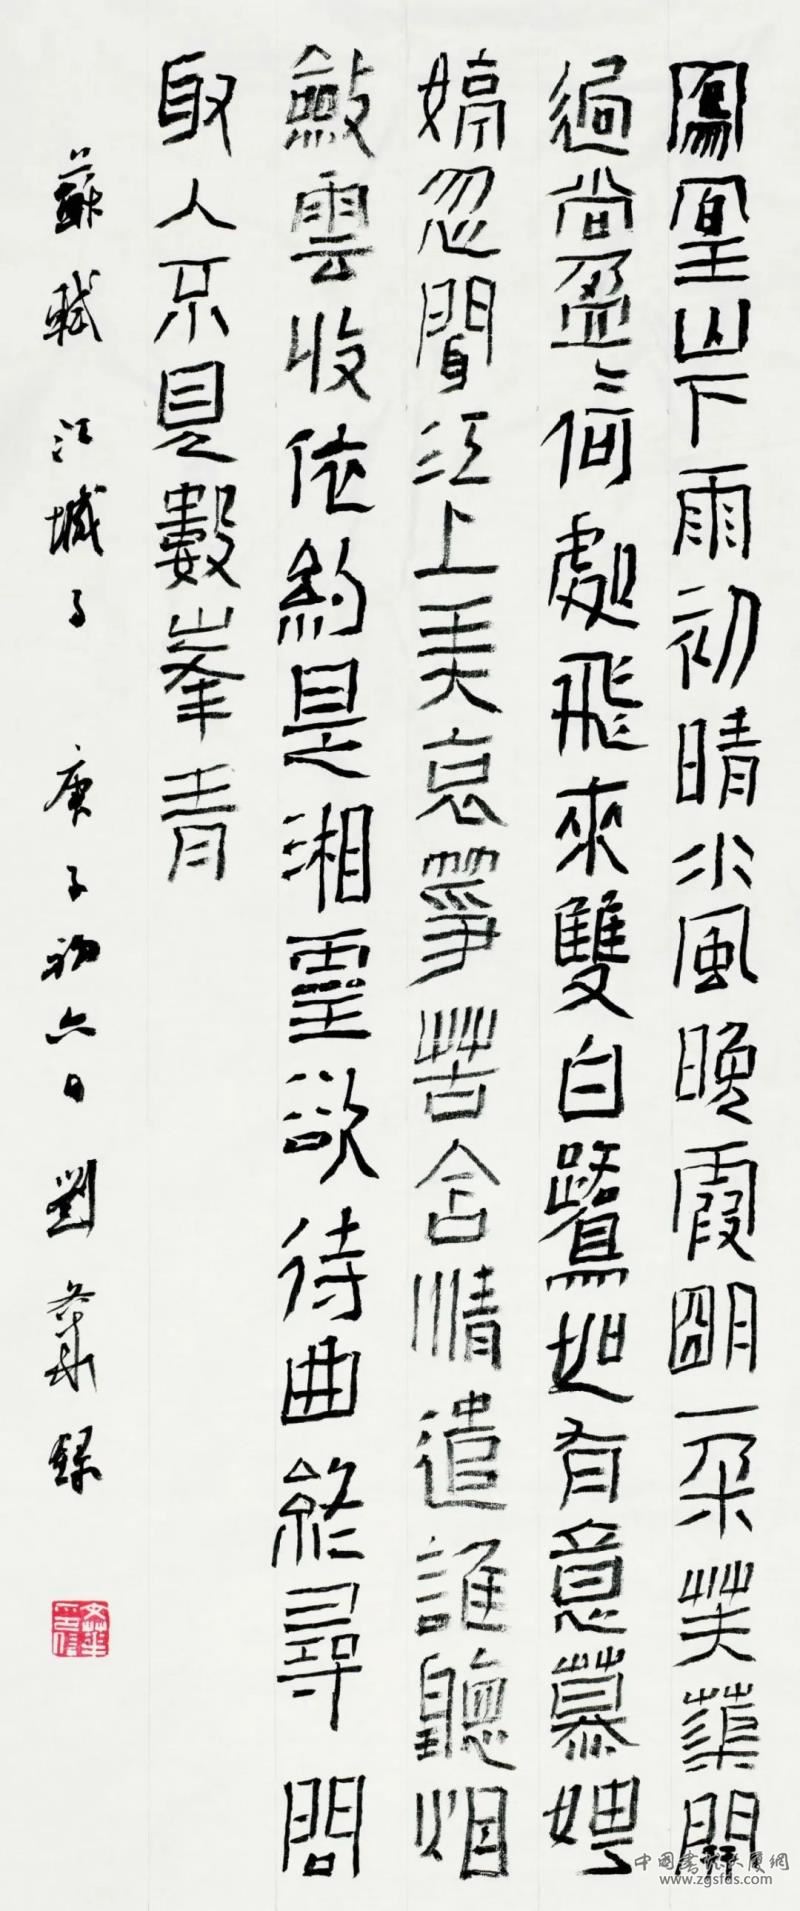 鳳凰山下雨初晴水風晚霞明一朵芙蕖開
過尚盈〻何處飛來雙白鷺如有意慕娉
婷忽聞江上弄哀箏苦含情遣誰聽烟
斂雲收依約是湘靈欲待曲終尋問
取人不見數峯青
蘇軾 江城子 庚子初六日 劉文華錄
中國書法大廈網
www.zgsfds.com